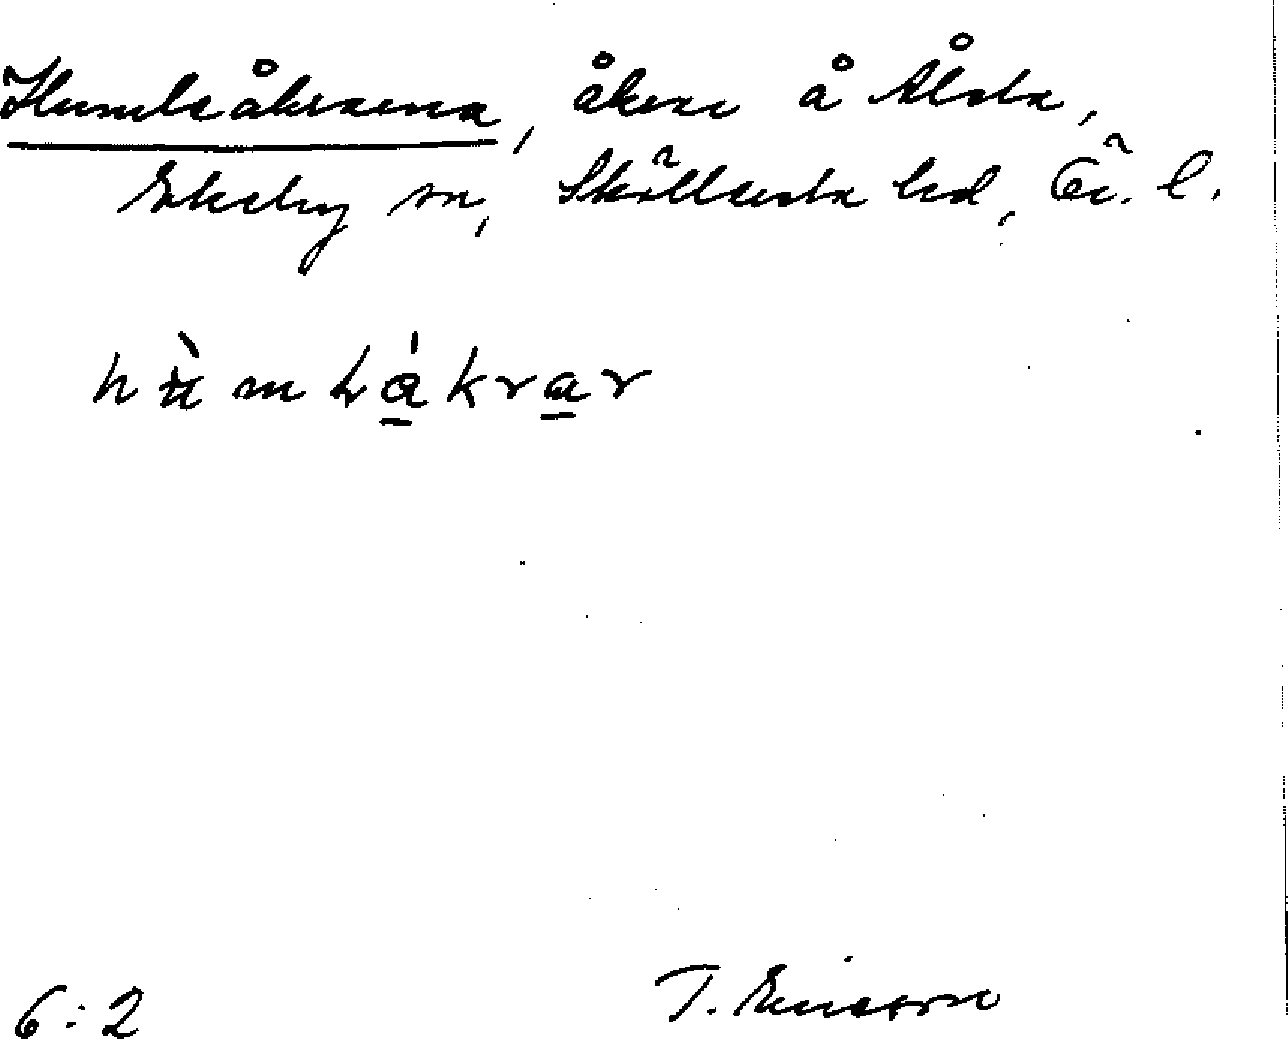 Humleåkrarna, åkrar å Ålsta,
Ekeby sn, Sköllersta hd, Ör. l.
hùmlákrar
6:2
T. Ericsson